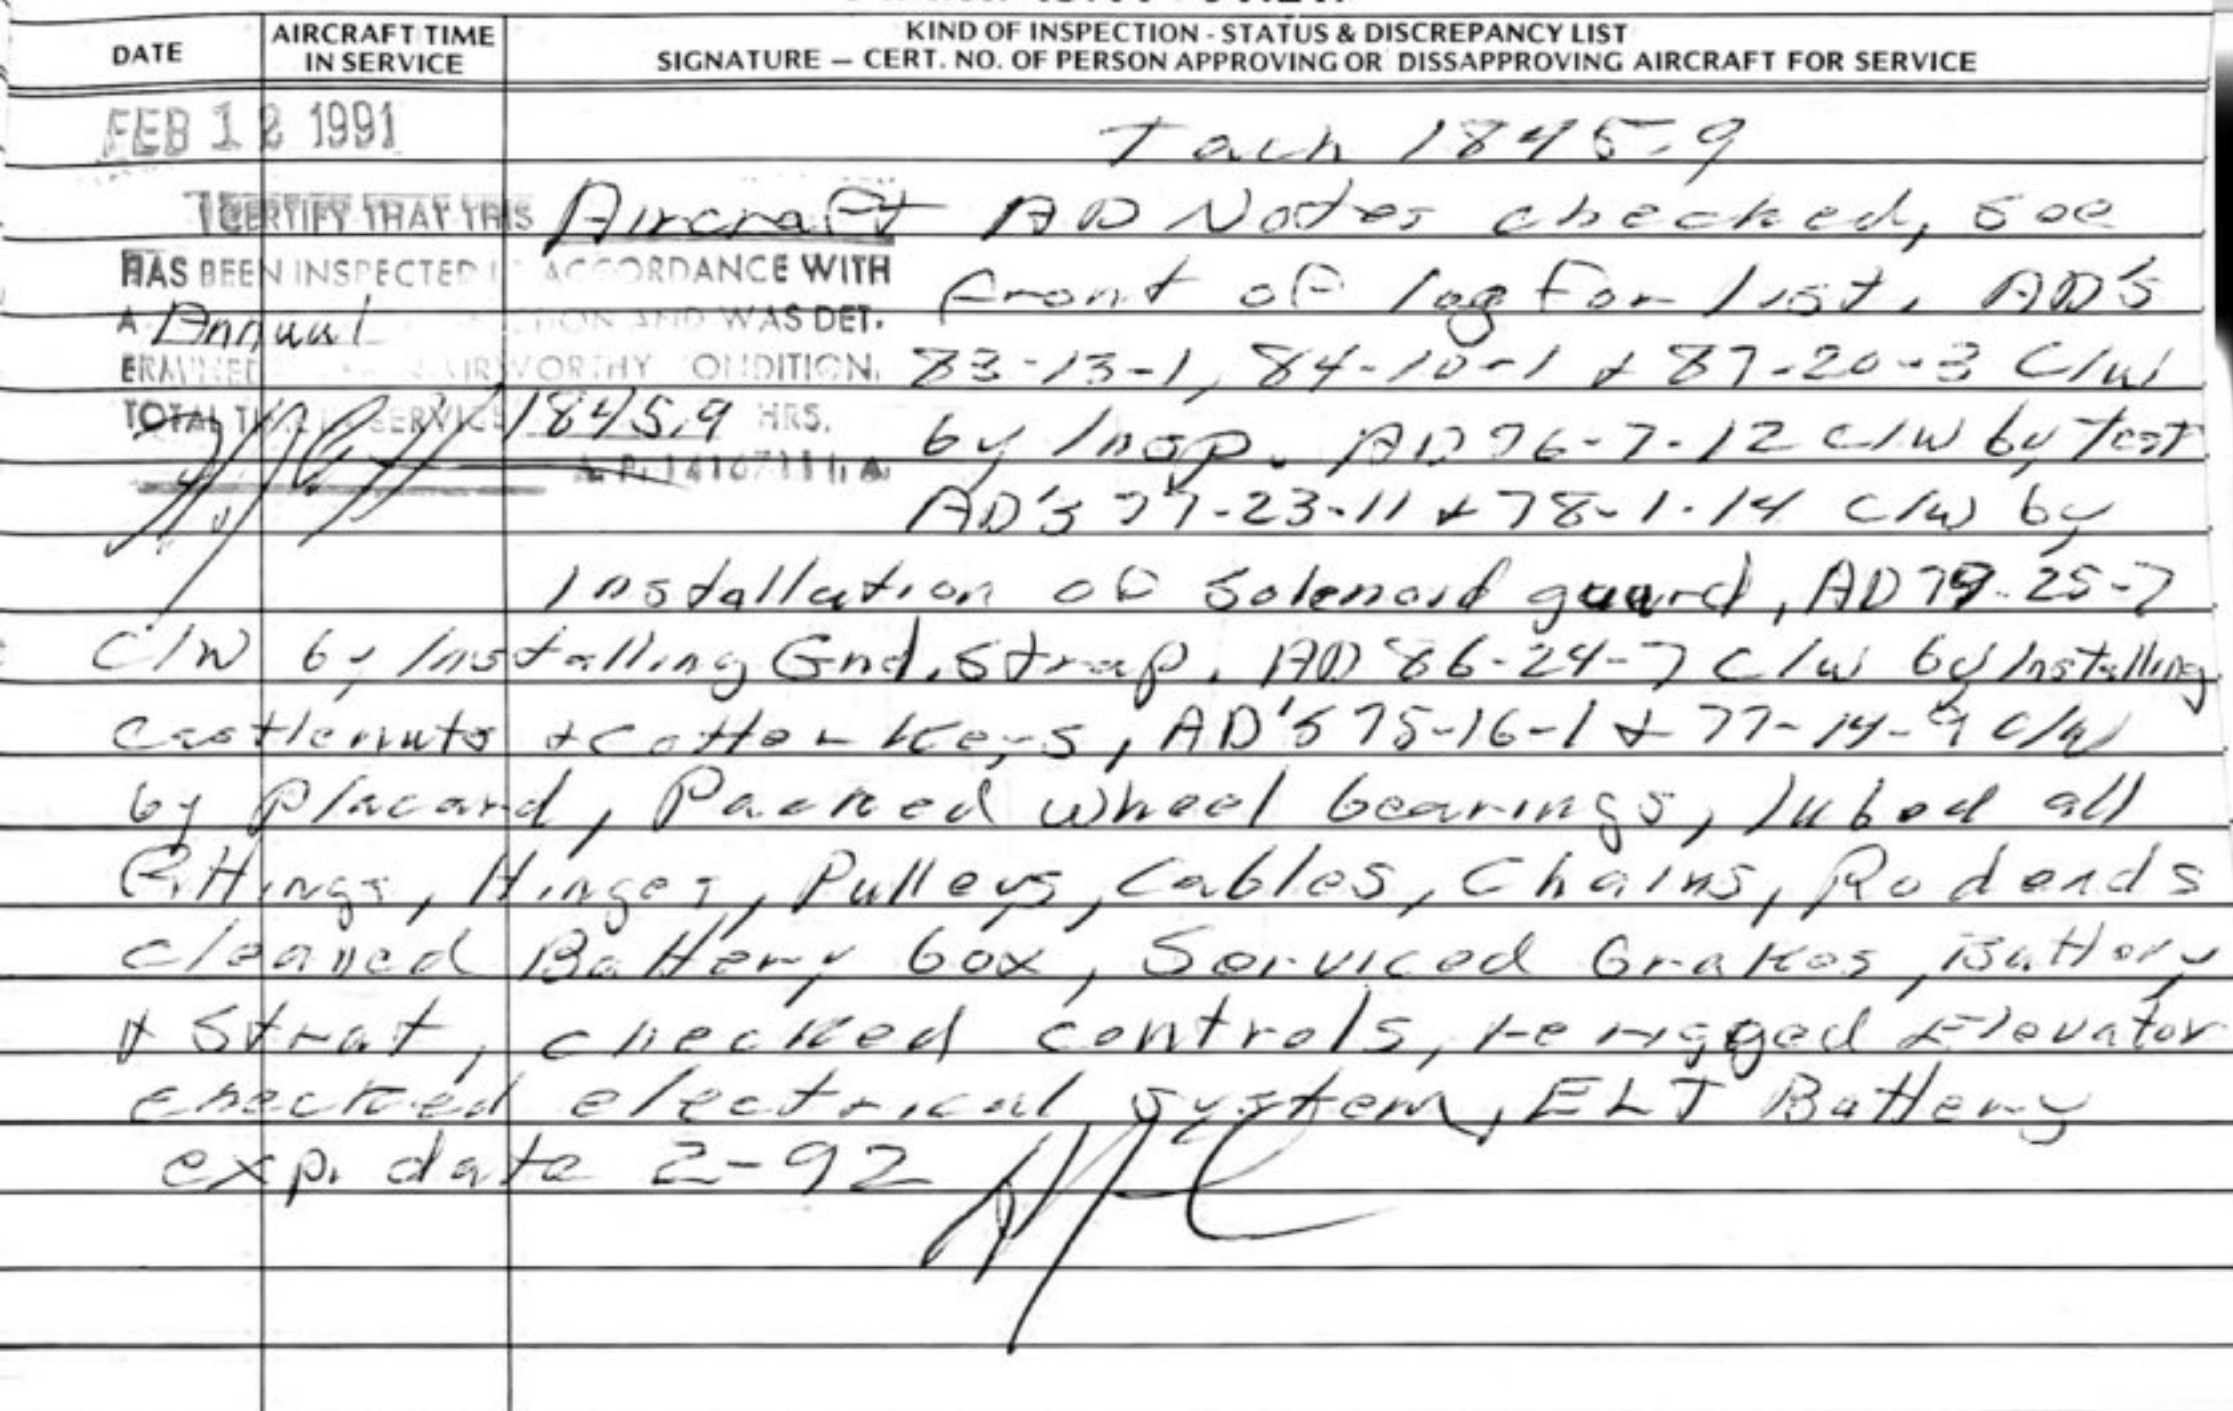 DATE
AIRCRAFT TIME
IN SERVICE
KIND OF INSPECTION - STATUS & DISCREPANCY LIST
SIGNATURE — CERT. NO. OF PERSON APPROVING OR DISSAPPROVING AIRCRAFT FOR SERVICE
FEB 12 1991
Tach 1845.9
I CERTIFY THAT THIS Aircraft
HAS BEEN INSPECTED ACCORDANCE WITH
A Annual AND WAS DET-
ERMINED AIRWORTHY CONDITION.
TOTAL TIME IN SERVICE 1845.9 HRS.
AD Notes checked, see
front of log for list. AD's
83-13-1, 84-10-1 & 87-20-3 C/W
by Insp. AD 76-7-12 C/W by Test
AD's 77-23-11 & 78-1-14 C/W by
Installation of Solenoid guard, AD 79-25-7
C/W by Installing Gnd. Strap. AD 86-24-7 C/W by Installing
castlenuts & cotter keys, AD's 75-16-1 & 77-14-9 C/W
by Placard, Packed wheel bearings, lubed all
fittings, Hinges, Pulleys, Cables, Chains, Rod ends
cleaned Battery box, Serviced brakes, Battery
& Strut, checked controls, re rigged Elevator
checked electrical system, ELT Battery
exp. date 2-92